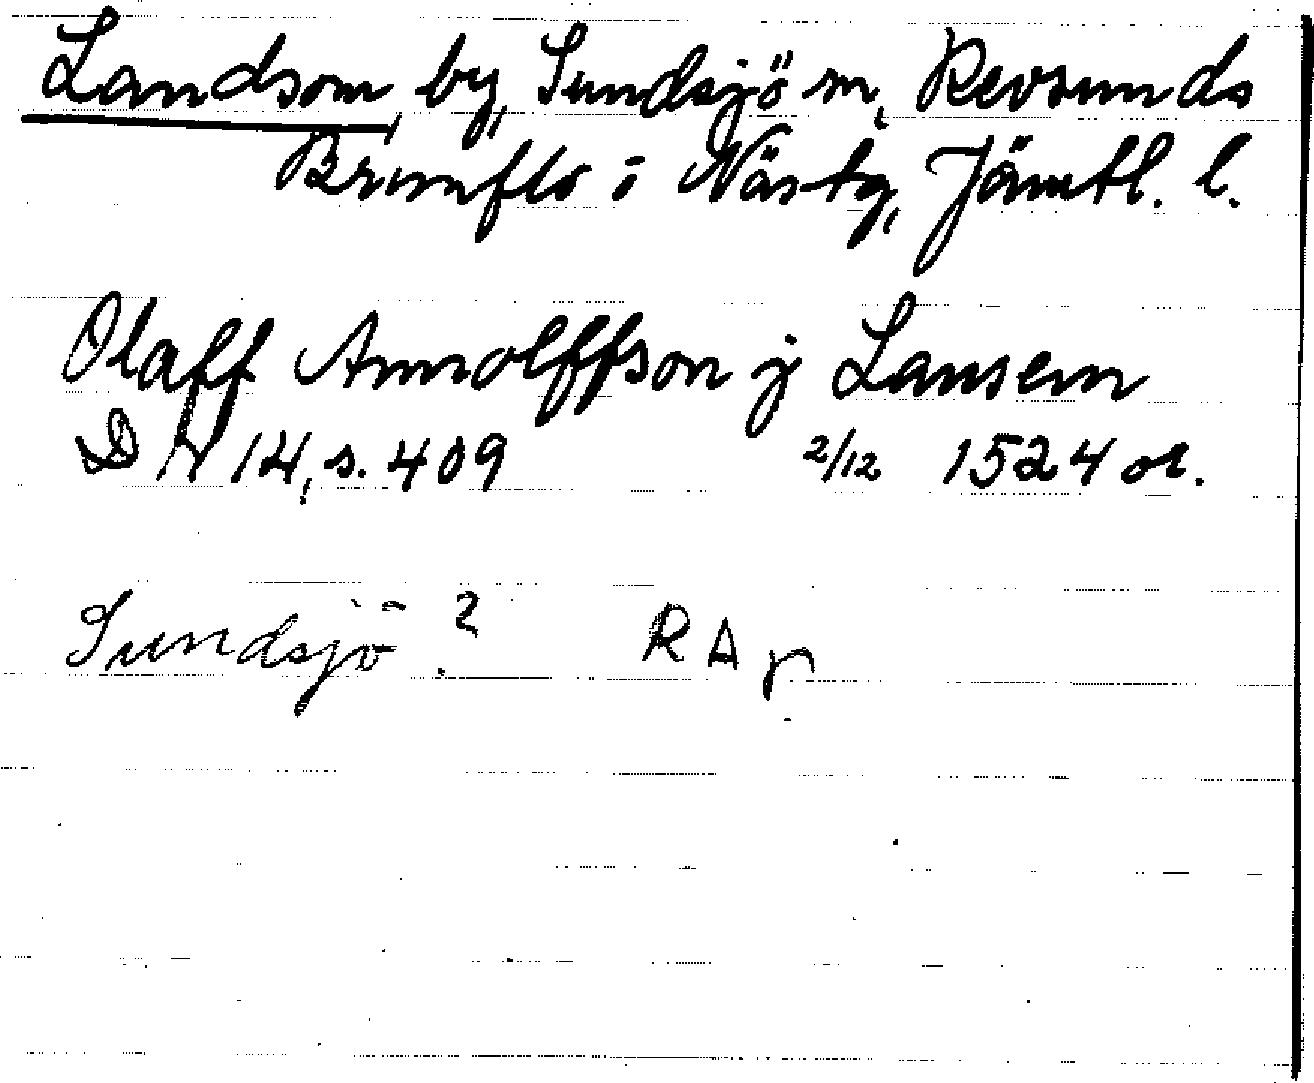 Landsom, by, Sundsjö sn, Revsunds
Brunflo i Nästg, Jämtl. l.
Olaff Arnolffson j Lansem
DN 14, s. 409 2/12 1524 or.
Sundsjö? RAp